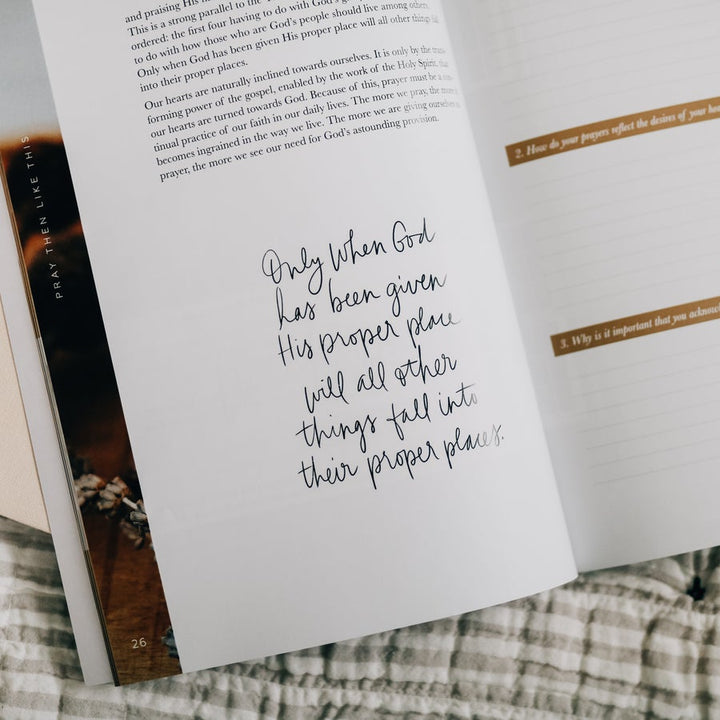 and praising His
This is a strong parallel to the
ordered: the first four having to do with God's
to do with how those who are God's people should live among others.
Only when God has been given His proper place will all other things fall
into their proper places.
Our hearts are naturally inclined towards ourselves. It is only by the trans-
forming power of the gospel, enabled by the work of the Holy Spirit, that
our hearts are turned towards God. Because of this, prayer must be a con-
tinual practice of our faith in our daily lives. The more we pray, the more it
becomes ingrained in the way we live. The more we are giving ourselves to
prayer, the more we see our need for God's astounding provision.
Only when God
has been given
His proper place
will all other
things fall into
their proper places.
PRAY THEN LIKE THIS
26
2. How do your prayers reflect the desires of your
3. Why is it important that you